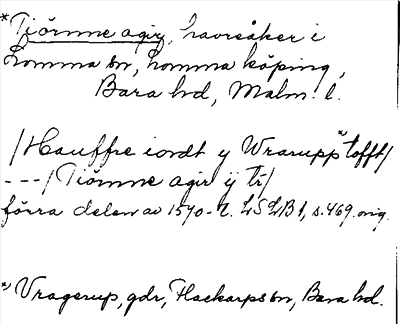 *Tiörnne agir, havreåker i
Lomma sn, Lomma köping,
Bara hd, Malm. l.
/Hauffre iordt y Wrarupp*) tofft/
---/Tiörnne agir ij tr/
förra delen av 1570-t. LSLB1, s. 469. orig.
*) Vragerup, gdr, Flackarps sn, Bara hd.